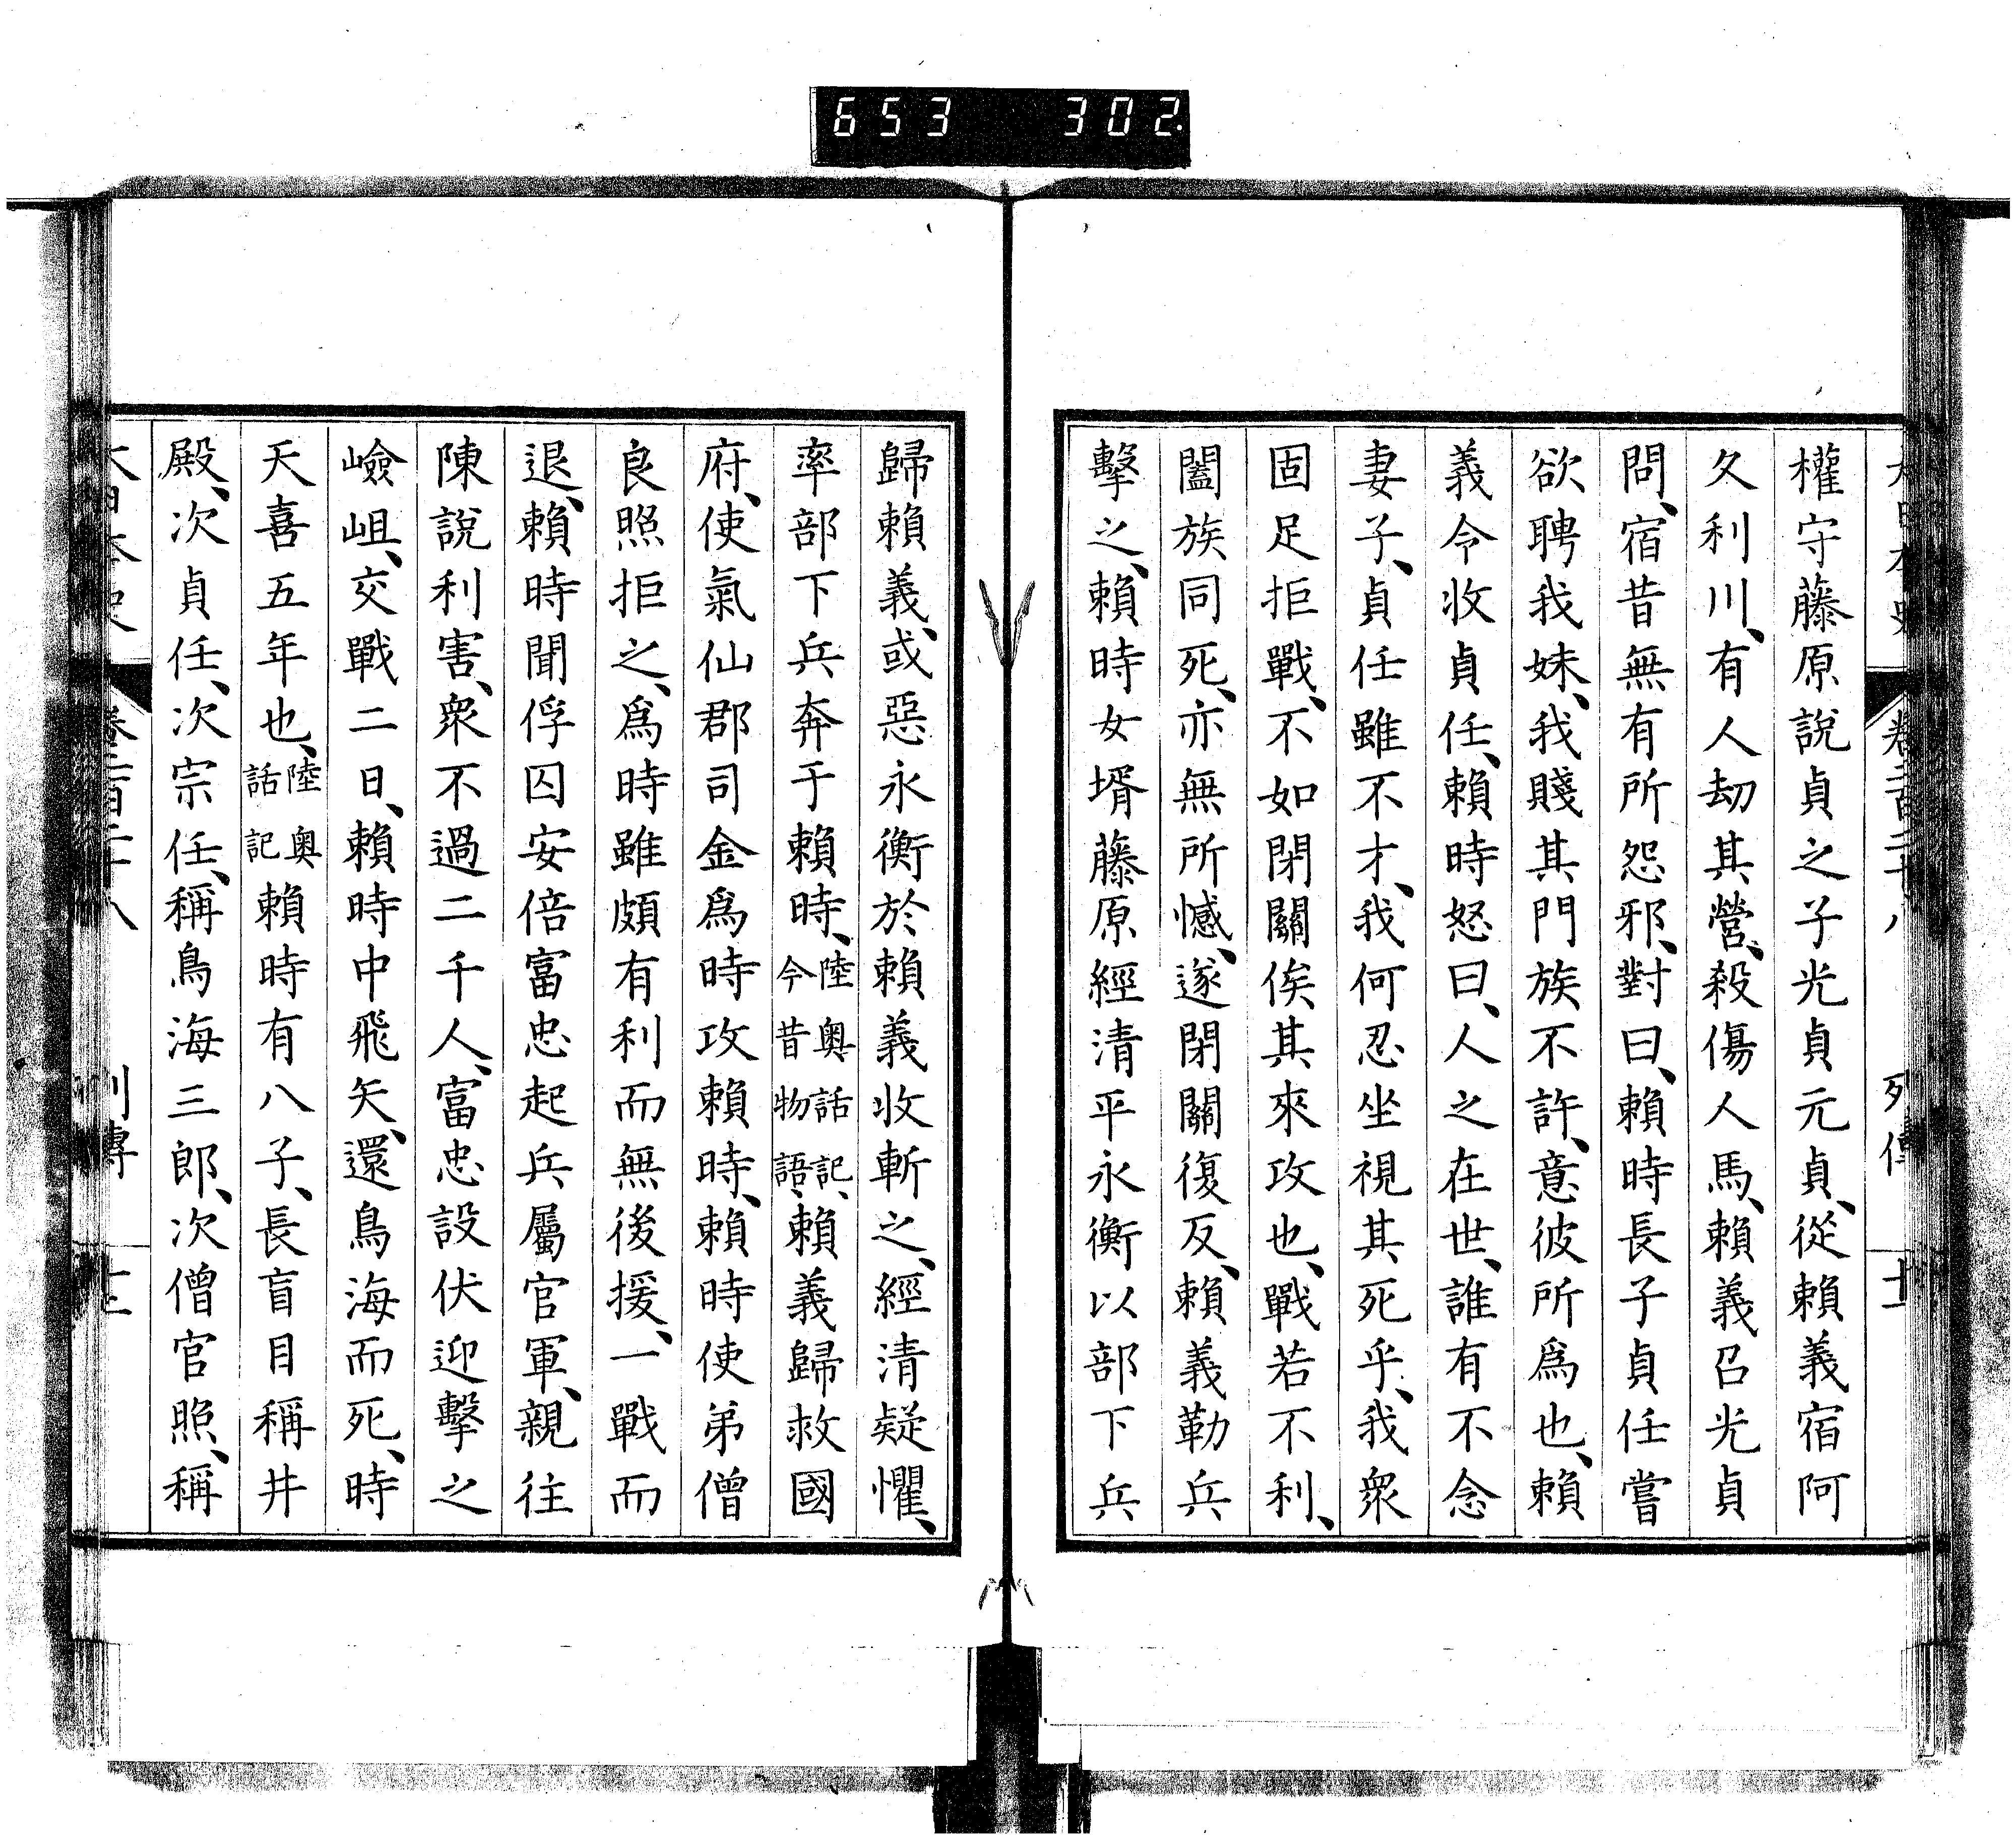 653 302
大日本史 卷二百二十八 列傳 十二
權守藤原說貞之子光貞元貞、從賴義宿阿
久利川、有人劫其營、殺傷人馬、賴義召光貞
問、宿昔無有所怨邪、對曰、賴時長子貞任嘗
欲聘我妹、我賤其門族不許、意彼所爲也、賴
義令收貞任、賴時怒曰、人之在世、誰有不念
妻子、貞任雖不才、我何忍坐視其死乎、我衆
固足拒戰、不如閉關俟其來攻也、戰若不利、
闔族同死、亦無所憾、遂閉關復反、賴義勒兵
擊之、賴時女壻藤原經清平永衡以部下兵
歸賴義、或惡永衡於賴義收斬之、經清疑懼、
率部下兵奔于賴時、陸奧話記、今昔物語、賴義歸救國
府、使氣仙郡司金爲時攻賴時、賴時使弟僧
良照拒之、爲時雖頗有利而無後援、一戰而
退、賴時聞俘囚安倍富忠起兵屬官軍、親往
陳說利害、衆不過二千人、富忠設伏迎擊之
嶮岨、交戰二日、賴時中飛矢、還鳥海而死、時
天喜五年也、陸奧話記賴時有八子、長盲目稱井
殿、次貞任、次宗任、稱鳥海三郎、次僧官照、稱
大日本史 卷二百二十八 列傳